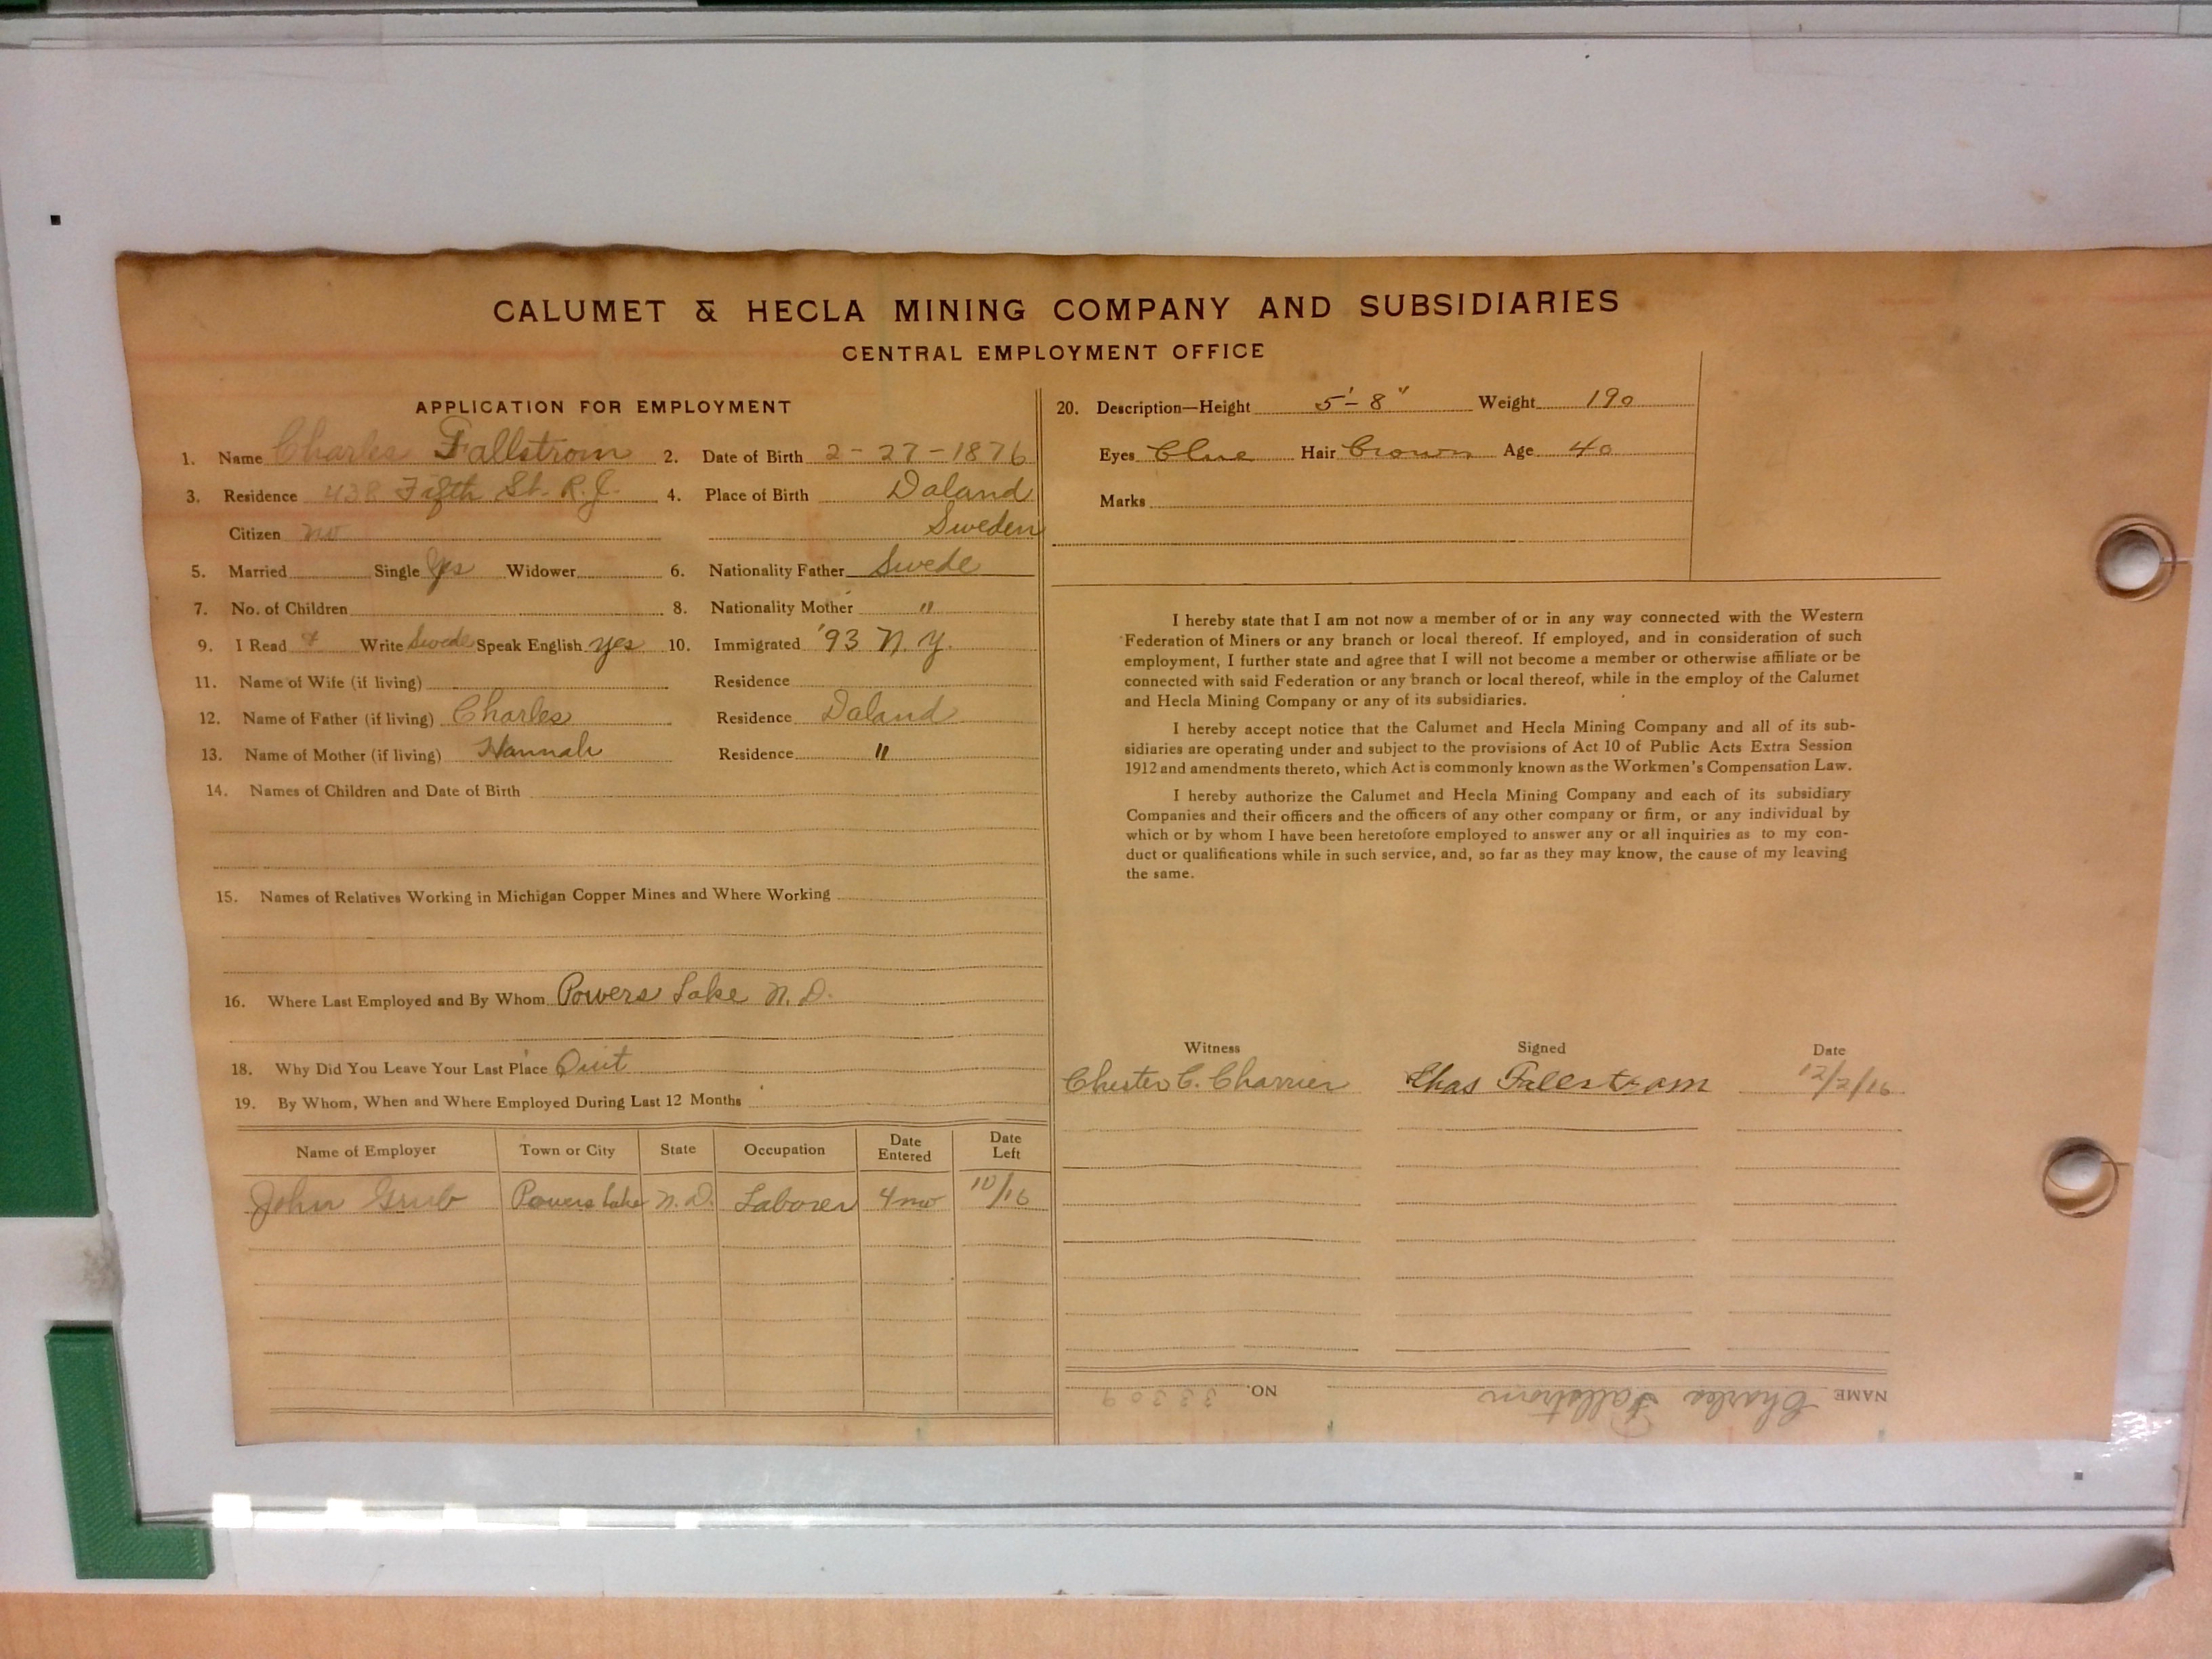 CALUMET & HECLA MINING COMPANY AND SUBSIDIARIES
CENTRAL EMPLOYMENT OFFICE
APPLICATION FOR EMPLOYMENT
1. Name Charles Fallstrom 2. Date of Birth 2-27-1876
3. Residence 438 Fifth St. R.J. 4. Place of Birth Daland
Citizen no Sweden
5. Married Single Yes Widower 6. Nationality Father Swede
7. No. of Children 8. Nationality Mother "
9. I Read & Write Swede Speak English yes 10. Immigrated '93 N.Y.
11. Name of Wife (if living) Residence
12. Name of Father (if living) Charles Residence Daland
13. Name of Mother (if living) Hannah Residence "
14. Names of Children and Date of Birth
15. Names of Relatives Working in Michigan Copper Mines and Where Working
16. Where Last Employed and By Whom Powers Lake N.D.
18. Why Did You Leave Your Last Place Quit
19. By Whom, When and Where Employed During Last 12 Months
Name of Employer Town or City State Occupation Date Entered Date Left
John Grub Powers Lake N.D. Laborer 4 mo 10/16
20. Description—Height 5'-8" Weight 190
Eyes Blue Hair Brown Age 40
Marks
I hereby state that I am not now a member of or in any way connected with the Western
Federation of Miners or any branch or local thereof. If employed, and in consideration of such
employment, I further state and agree that I will not become a member or otherwise affiliate or be
connected with said Federation or any branch or local thereof, while in the employ of the Calumet
and Hecla Mining Company or any of its subsidiaries.
I hereby accept notice that the Calumet and Hecla Mining Company and all of its sub-
sidiaries are operating under and subject to the provisions of Act 10 of Public Acts Extra Session
1912 and amendments thereto, which Act is commonly known as the Workmen's Compensation Law.
I hereby authorize the Calumet and Hecla Mining Company and each of its subsidiary
Companies and their officers and the officers of any other company or firm, or any individual by
which or by whom I have been heretofore employed to answer any or all inquiries as to my con-
duct or qualifications while in such service, and, so far as they may know, the cause of my leaving
the same.
Witness Signed Date
Chester C. Charrier Chas Fallstrom 12/2/16
NAME Charles Fallstrom NO. 33309